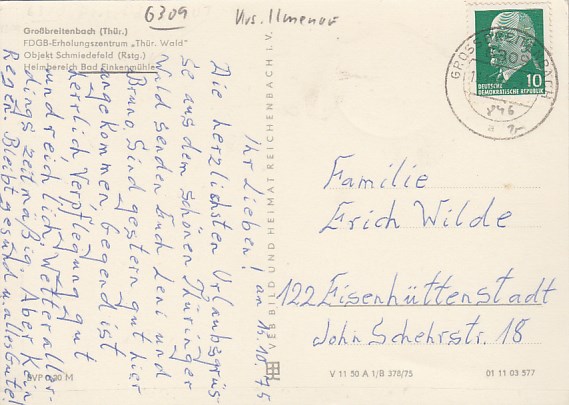 6309
Krs. Ilmenau
Großbreitenbach (Thür.)
FDGB-Erholungszentrum „Thür. Wald"
Objekt Schmiedefeld (Rstg.)
Heimbereich Bad Finkenmühle
Ihr Lieben! am 16.10.75
Die herzlichsten Urlaubsgrüs-
se aus dem schönen Thüringer
Wald senden Euch Leni und
Bruno. Sind gestern gut hier
angekommen. Gegend ist
herrlich, Verpflegung gut
und reichlich, Wetter aller-
dings zeitmäßig. Aber kein
Regen. Bleibt gesund u. alles Gute!
VEB BILD UND HEIMAT REICHENBACH I. V.
DEUTSCHE
DEMOKRATISCHE REPUBLIK
10
Familie
Erich Wilde
122 Eisenhüttenstadt
John Schehrstr. 18
EVP 0,20 M
V 11 50 A 1/B 378/75
01 11 03 577